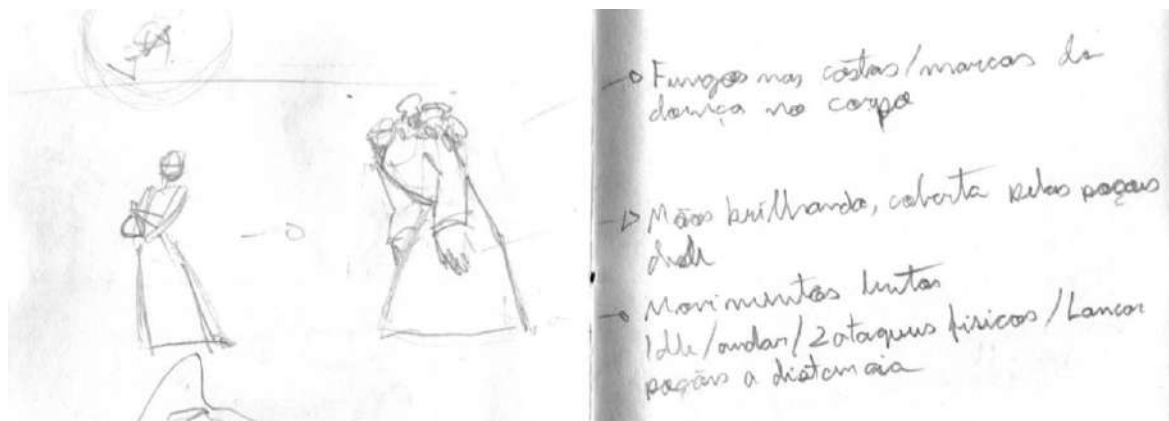 Fungos nas costas/marcas da
doença no corpo
Mãos brilhando, coberta pelas poções
dele
Movimentos lentos
Idle/andar/2 ataques físicos/Lançar
poções a distancia